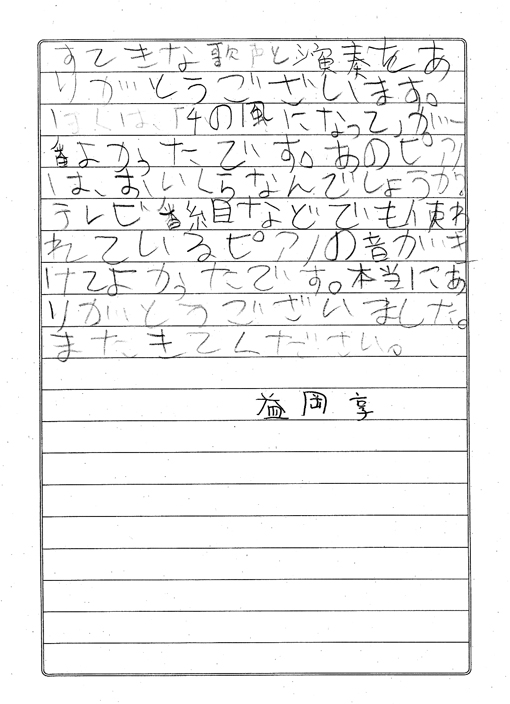 すてきな歌声と演奏をあ
りがとうございます。
ぼくは、「千の風になって」が一
番よかったです。あのピアノ
は、おいくらなんでしょうか。
テレビ番組などでも使わ
れているピアノの音がき
けてよかったです。本当にあ
りがとうございました。
またきてください。
益岡 享